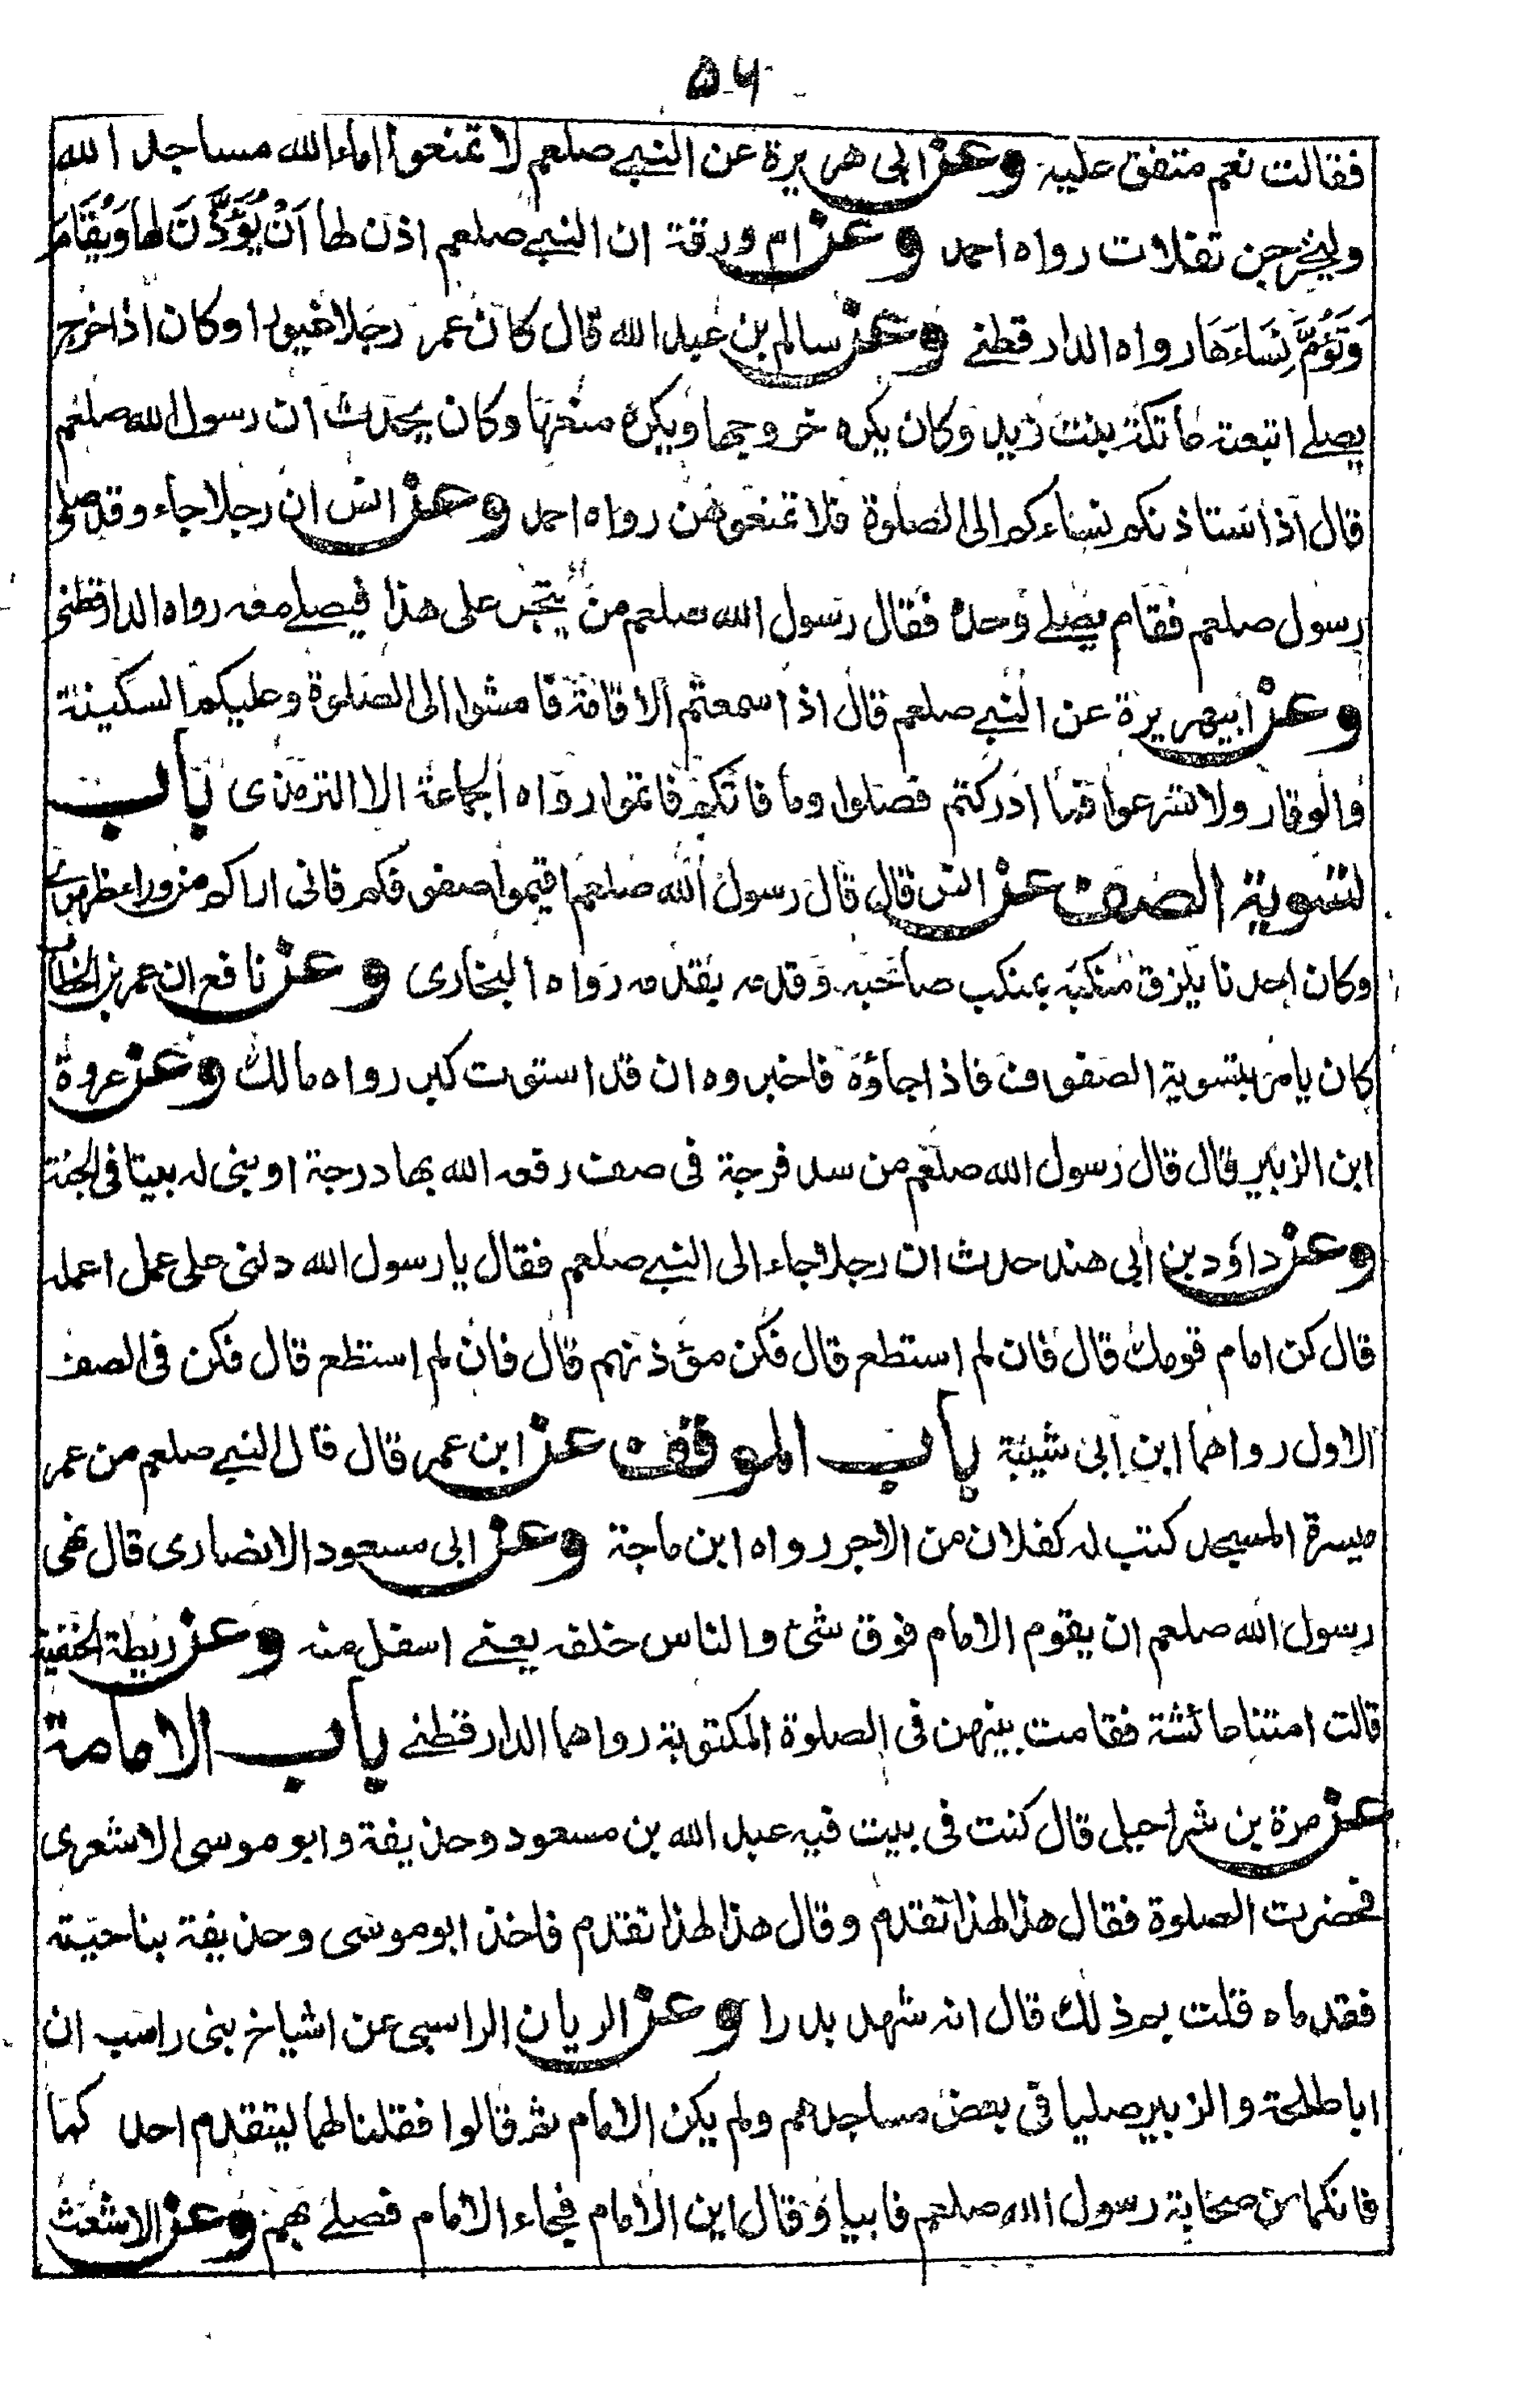 ۵۶
فقالت نعم متفق عليه وعن ابى هريرة عن النبى صلعم لا تمنعوا اماء الله مساجد الله
وليخرجن تفلات رواه احمد وعن ام ورقة ان النبى صلعم اذن لها اَنْ يُؤَذَّنَ لها وَيُقَامَ
وَتَؤُمَّ نِسَاءَهَا رواه الدارقطنى وعن سالم بن عبد الله قال كان عمر رجلا غيورا وكان اذا خرج
يصلى اتبعته عاتكة بنت زيد وكان يكره خروجها ويكره منعها وكان يحدث ان رسول الله صلعم
قال اذا استاذنكم نساءكم الى الصلوة فلا تمنعوهن رواه احمد وعن انس ان رجلا جاء وقد صلى
رسول صلعم فقام يصلى وحده فقال رسول الله صلعم من يتجر على هذا فيصلى معه رواه الدارقطنى
وعن ابيهريرة عن النبى صلعم قال اذا سمعتم الاقامة فامشوا الى الصلوة وعليكم السكينة
والوقار ولا تسرعوا فما ادركتم فصلوا وما فاتكم فاتموا رواه الجماعة الا الترمذى باب
تسوية الصف عن انس قال قال رسول الله صلعم اقيموا صفوفكم فانى اراكم من وراء ظهرى
وكان احدنا يلزق منكبه بمنكب صاحبه وقدمه بقدمه رواه البخارى وعن نافع ان عمر بن الخطاب
كان يامر بتسوية الصفوف فاذا جاؤه فاخبروه ان قد استوت كبر رواه مالك وعن عروة
ابن الزبير قال قال رسول الله صلعم من سد فرجة فى صف رفعه الله بها درجة او بنى له بيتا فى الجنة
وعن داؤد بن ابى هند حدث ان رجلا جاء الى النبى صلعم فقال يا رسول الله دلنى على عمل اعمله
قال كن امام قومك قال فان لم استطع قال فكن مؤذنهم قال فان لم استطع قال فكن فى الصف
الاول رواهما ابن ابى شيبة باب الموقف عن ابن عمر قال قال النبى صلعم من عمر
ميسرة المسجد كتب له كفلان من الاجر رواه ابن ماجة وعن ابى مسعود الانصارى قال نهى
رسول الله صلعم ان يقوم الامام فوق شئ والناس خلفه يعنى اسفل منه وعن ريطة الحنفية
قالت امتنا عائشة فقامت بينهن فى الصلوة المكتوبة رواهما الدارقطنى باب الامامة
عن مرة بن شراحيل قال كنت فى بيت فيه عبد الله بن مسعود وحذيفة وابو موسى الاشعرى
فحضرت الصلوة فقال هذا لهذا تقدم وقال هذا لهذا تقدم فاخذ ابو موسى وحذيفة بناحيته
فقدماه قلت بم ذلك قال انه شهد بدرا وعن الريان الراسبى عن اشياخ بنى راسب ان
ابا طلحة والزبير صليا فى بعض مساجدهم ولم يكن الامام ثم قالوا فقلنا لهما ليتقدم احد كما
فانكما من صحابة رسول الله صلعم فابيا وقال اين الامام فجاء الامام فصلى بهم وعن الاشعث